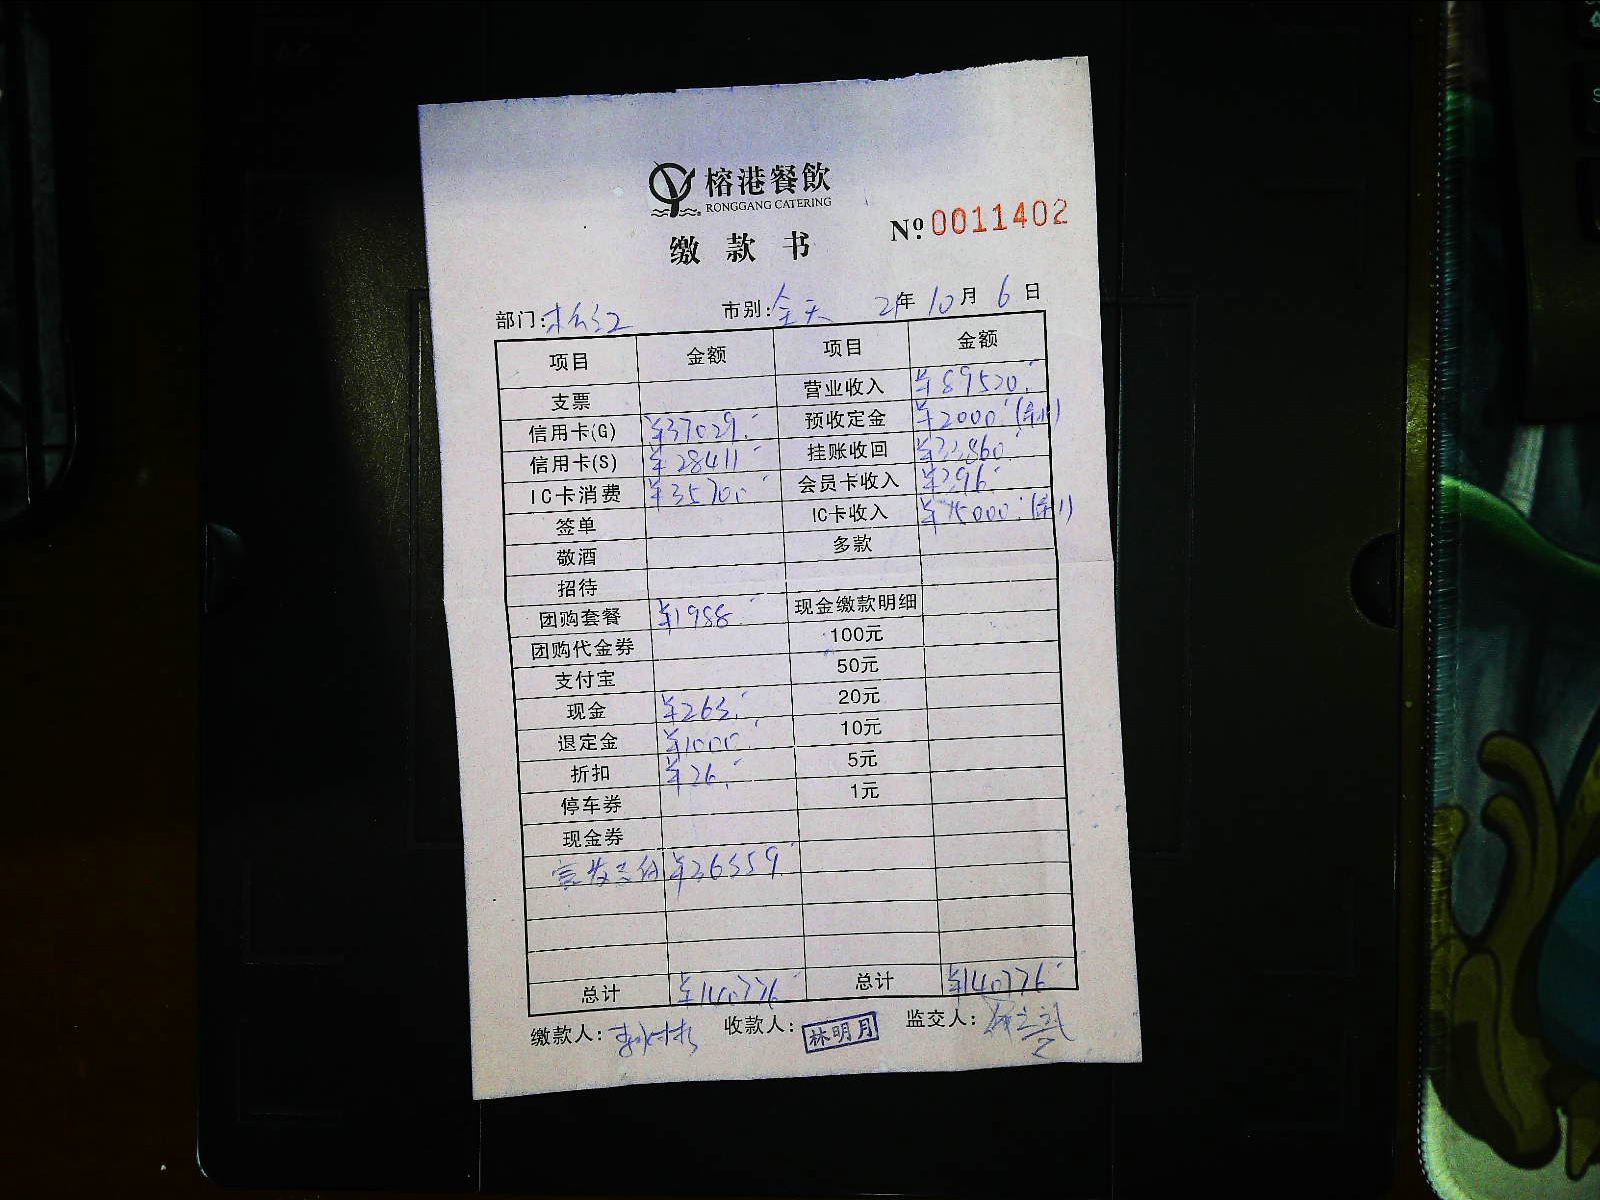 榕港餐飲
RONGGANG CATERING
缴款书
Nº 0011402
部门: 市别:全天 21年10月6日
项目 金额 项目 金额
支票 营业收入 ¥89520.-
信用卡(G) ¥37029.- 预收定金 ¥2000.-
信用卡(S) ¥28411.- 挂账收回 ¥33860.-
IC卡消费 ¥35700.- 会员卡收入 ¥396.-
签单 IC卡收入 ¥15000.-
敬酒 多款
招待
团购套餐 ¥1988.- 现金缴款明细
团购代金券 100元
支付宝 50元
现金 ¥263.- 20元
退定金 ¥1000.- 10元
折扣 ¥26.- 5元
停车券 1元
现金券
富友支付 ¥36359.-
总计 ¥140776.- 总计 ¥140776.-
缴款人: 收款人:林明月 监交人: